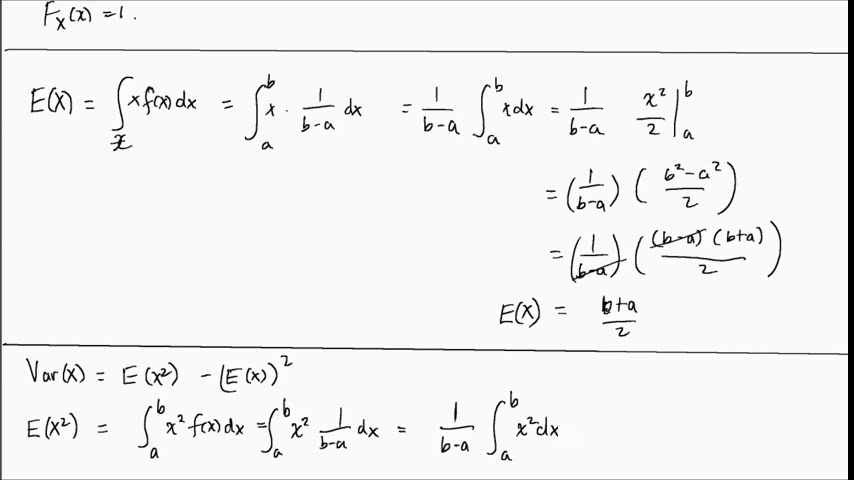 F_X(x) = 1.
E(X) = ∫_𝒳 x f(x) dx = ∫_a^b x · 1/(b-a) dx = 1/(b-a) ∫_a^b x dx = 1/(b-a) x²/2 |_a^b
= (1/(b-a)) ((b²-a²)/2)
= (1/(b-a)) ((b-a)(b+a)/2)
E(X) = (b+a)/2
Var(X) = E(X²) - (E(X))²
E(X²) = ∫_a^b x² f(x) dx = ∫_a^b x² 1/(b-a) dx = 1/(b-a) ∫_a^b x² dx